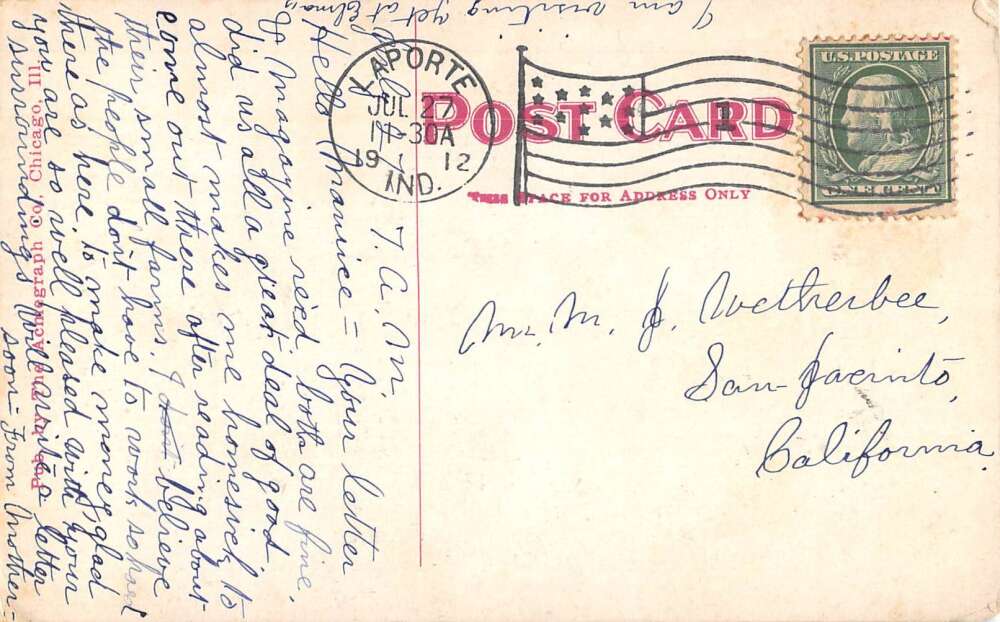 I am visiting yet at Elmas
7. A. M.
Hello Maurice = Your letter
& Magazine recd both are fine.
did us all a great deal of good
almost makes me homesick to
come out there after reading about
their small farms. I dont believe
the people don't have to work so hard
there as here. to make money. glad
you are so well pleased with your
surroundings will write a letter
soon = From Mother =
Pub. by The Acmegraph Co., Chicago, Ill.
LAPORTE
JUL 27
11-30A
19 12
IND.
POST CARD
1
THIS SPACE FOR ADDRESS ONLY
U.S. POSTAGE
ONE CENT
Mr. M. J. Wetherbee,
San-Jacinto,
California.